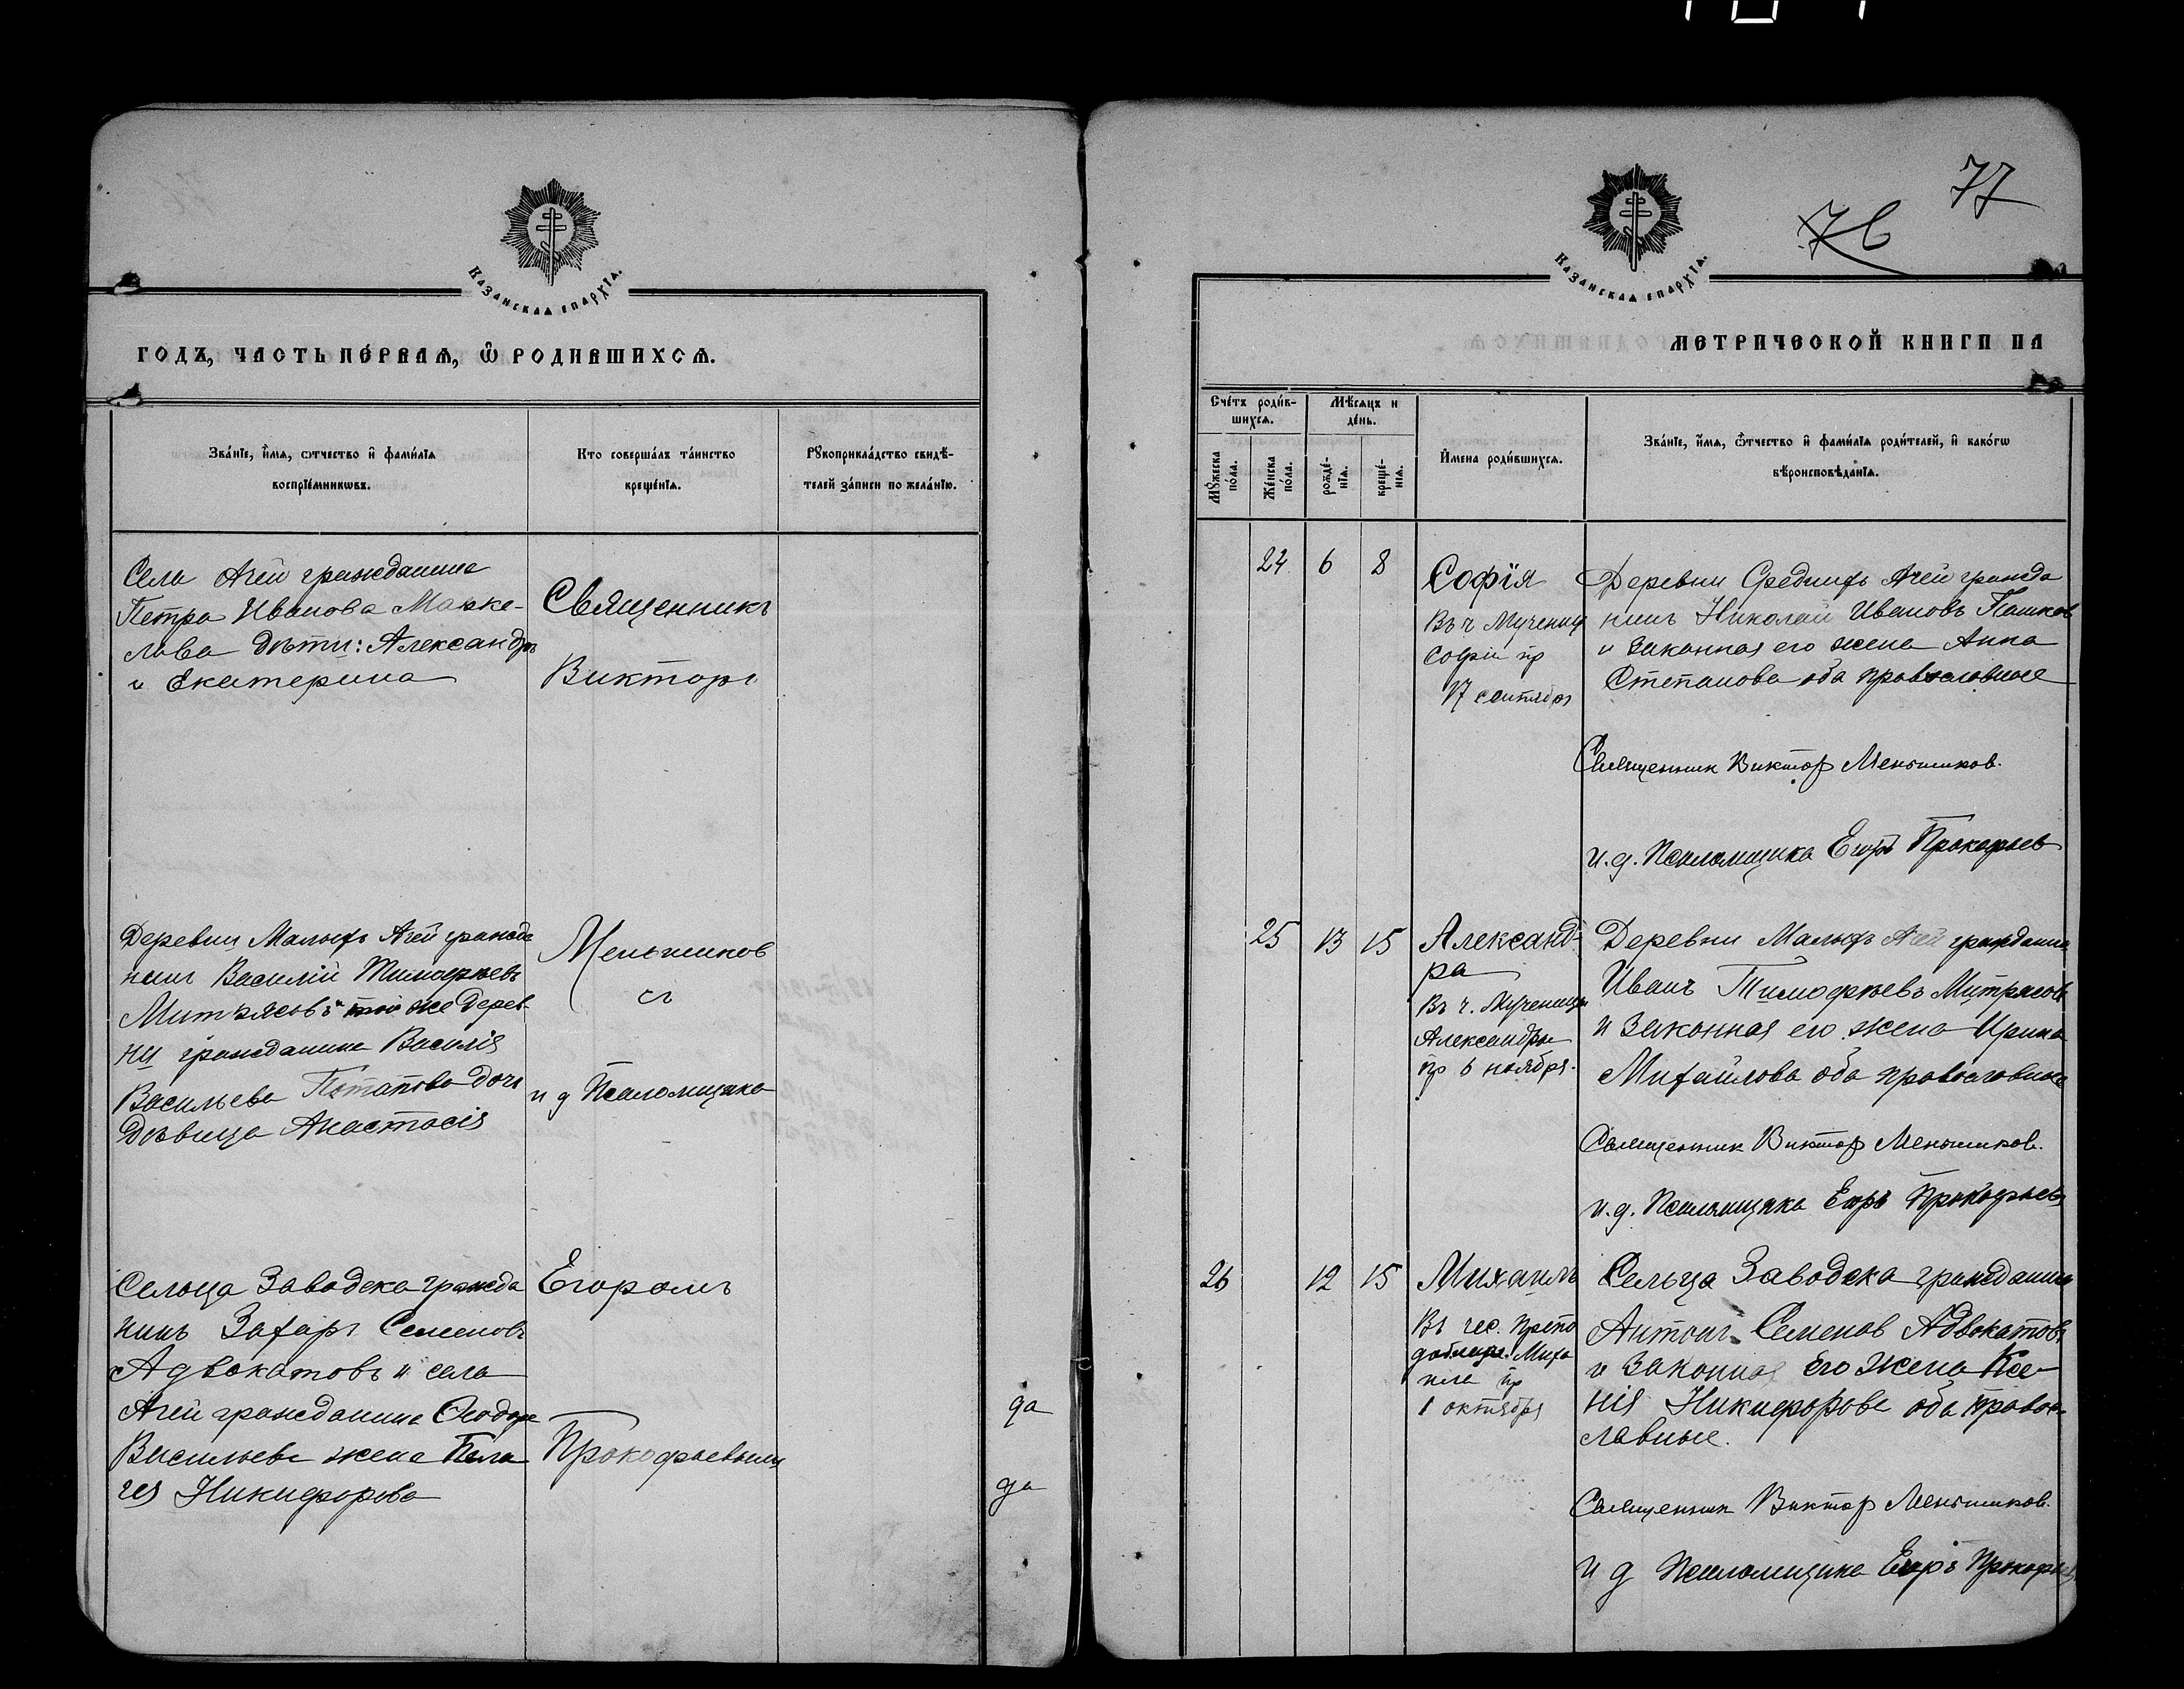 Казанская епархїя.
ГОДЪ, ЧАСТЬ ПЕ́РВАЯ, Ѿ РОДИВШИХСЯ.
Зва́нїе, и́мя, ѻтчество и҆ фами́лїя
воспрїе́мникѡвъ.
Кто соверша́лъ та́инство
креще́нїя.
Рꙋкоприкла́дство свидѣ́-
телей за́писи по жела́нїю.
Села Ачей гражданина
Петра Иванова Марке-
лова дѣти: Александръ
и Екатерина
Священникъ
Викторъ
Деревни Малыхъ Ачей гражда
нинъ Василій Тимофѣевъ
Митрясовъ и той же дерев-
ни гражданина Василія
Васильева Потапова дочь
Дѣвица Анастасія
Меньшиков
съ
и д Псаломщика
Сельца Заводска гражда
нинъ Захаръ Семеновъ
Адвокатовъ и села
Ачей гражданина Ѳеодора
Васильева жена Пела
гея Никифорова
Егоромъ
Прокофьевымъ
да
да
77
76
Казанская епархїя.
МЕТРИЧЕСКОЙ КНИГИ НА
Сче́тъ роди́в-
шихся.
Мꙋжеска по́ла.
Же́нска по́ла.
Мѣ́сяцъ и
де́нь.
рожде́-нїя.
креще́-нїя.
И҆мена роди́вшихся.
Зва́нїе, и҆́мя, ѻ҆́тчество и҆ фами́лїя роди́телей, и҆ како́гѡ
вѣроисповѣ́данїя.
24 6 8
Софія
Въ ч Мучениц
Софіи пр
17 сентября
Деревни Среднихъ Ачей гражда
нинъ Николай Ивановъ Пашков
и законная его жена Анна
Степанова оба православные
Священник Виктор Меньшиков.
и.д. Псаломщика Егоръ Прокофьев
25 13 15
Александ-
ра
Въ ч. Мученицы
Александры
пр 6 ноября.
Деревни Малыхъ Ачей гражданин
Иванъ Тимофѣевъ Митрясовъ
и законная его жена Ирина
Михайлова оба православные
Священник Виктор Меньшиков.
и.д. Псаломщика Егоръ Прокофьевъ
26 12 15
Михаилъ
Въ чес. Препо
добнаго Миха
ила пр
1 октября
Сельца Заводска гражданинъ
Антонъ Семенов Адвокатовъ
и законная его жена Ксе-
нія Никифорова оба правос-
лавные.
Священник Виктор Меньшиков.
и д Псаломщика Егоръ Прокофьев